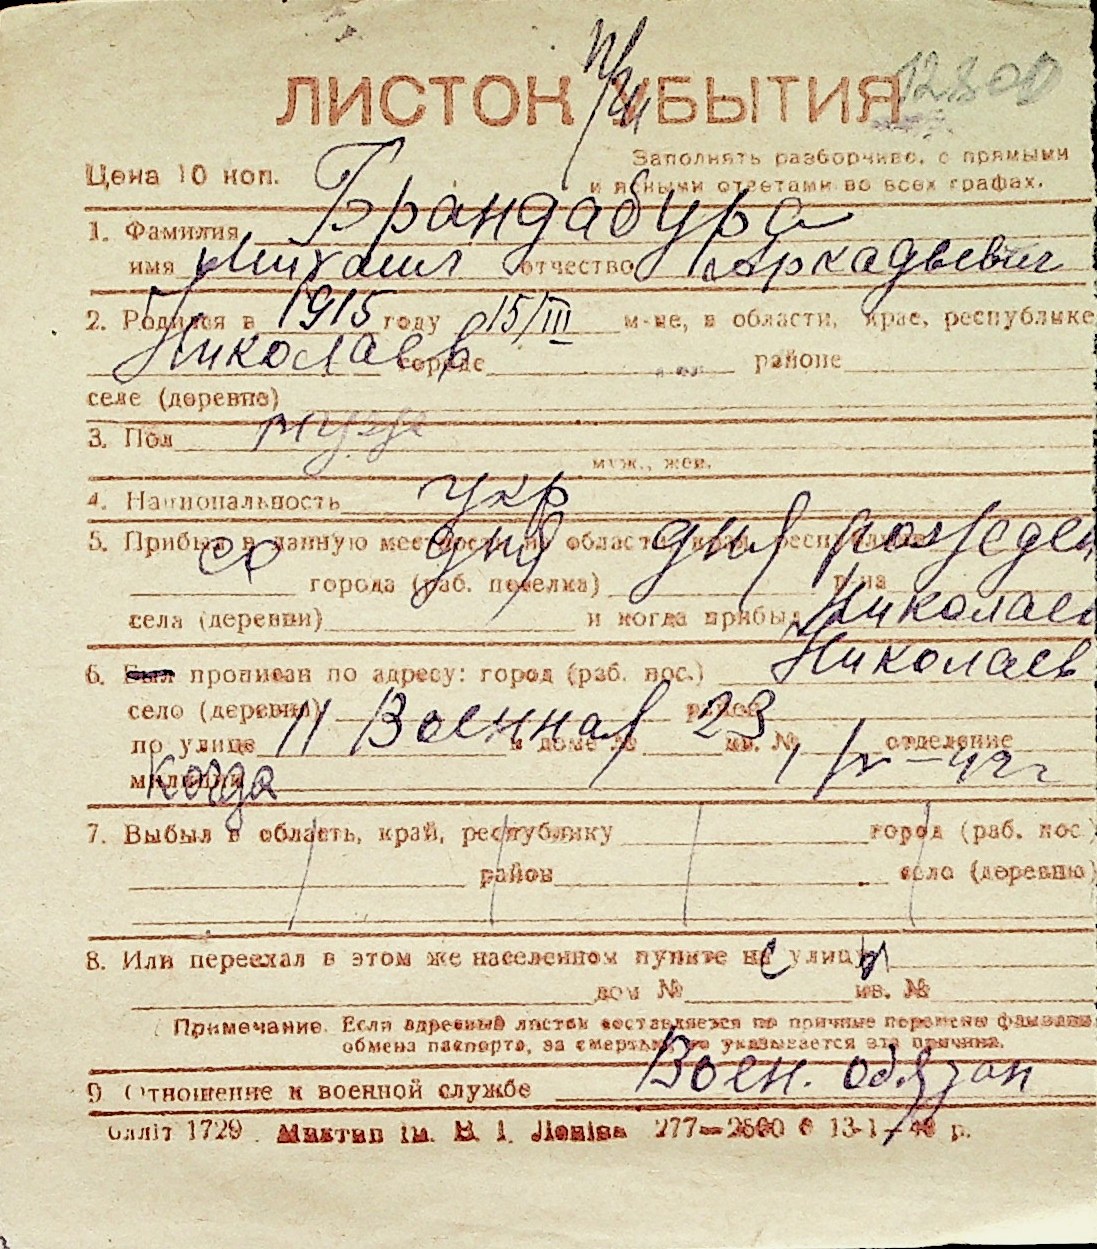 12800
п/и
ЛИСТОК УБЫТИЯ
Цена 10 коп.
Заполнять разборчиво, с прямыми
и ясными ответами во всех графах.
1. Фамилия Брандабура
имя Михаил отчество Аркадьевич
2. Родился в 1915 году 15/III м-це, в области, крае, республике
Николаев городе районе
селе (деревне)
3. Пол муж
муж., жен.
4. Национальность укр
5. Прибыл в данную местность из области, края, республики
со дня дня рожден
города (раб. поселка) р-на
села (деревни) и когда прибыл Николаев
6. Был прописан по адресу: город (раб. пос.) Николаев
село (деревня) район
по улице 11 Военная в доме № 23 кв. № отделение
милиции когда
7. Выбыл в область, край, республику город (раб. пос.)
район село (деревню)
8. Или переехал в этом же населенном пункте на улицу
дом № кв. №
Примечание. Если адресный листок составляется по причине перемены фамилии
обмена паспорта, за смертью, то указывается эта причина.
9 Отношение к военной службе Воен. обязан
Олліт 1729 Миктип ім. В. І. Леніна 277—2500 13-1-